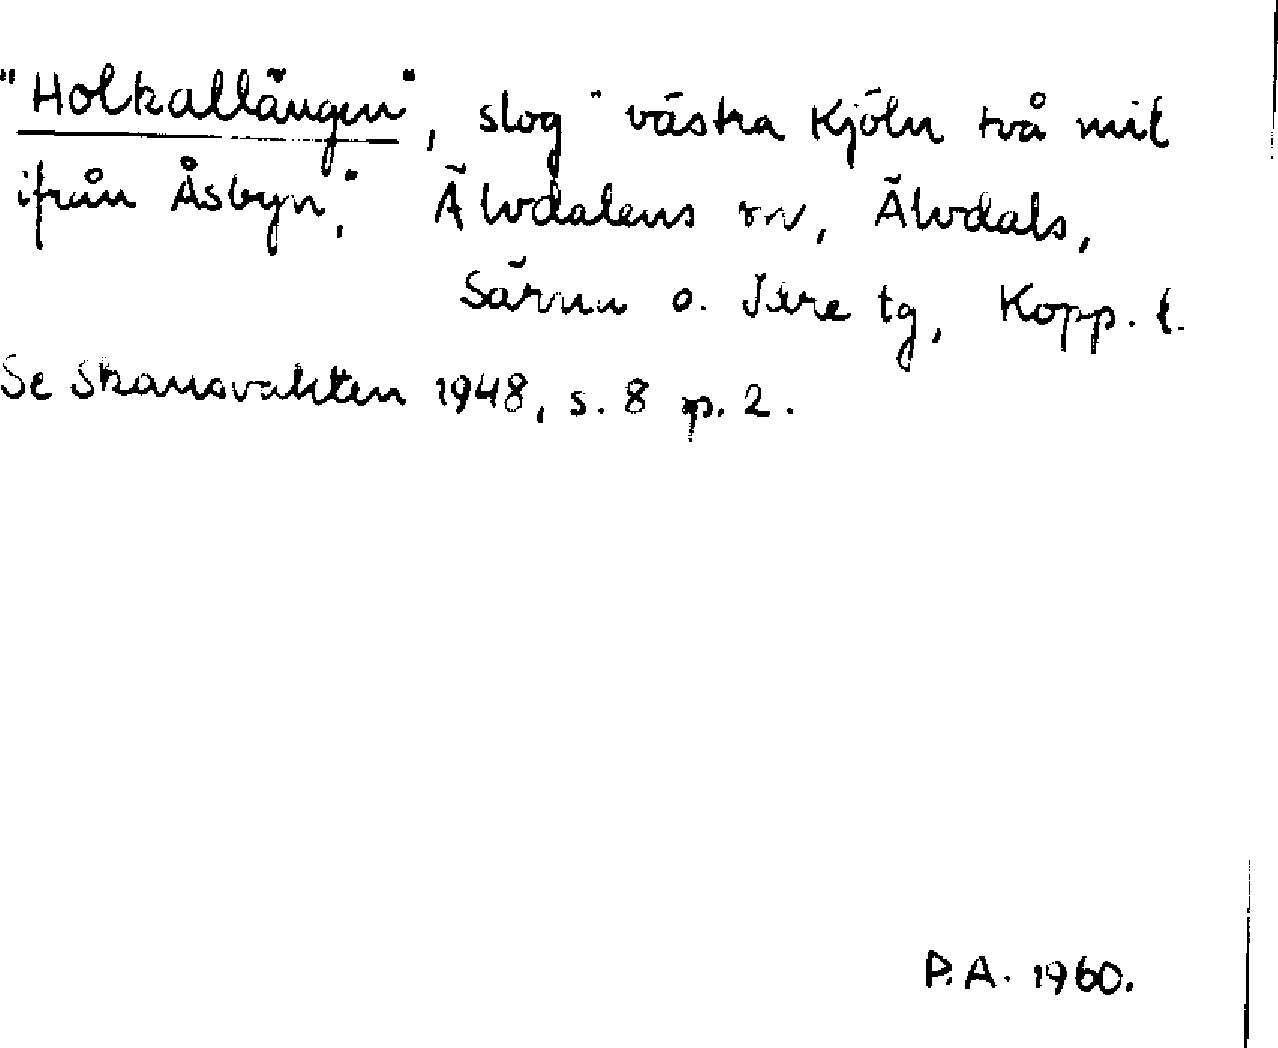 "Holkallängen", slog "västra Kjöln två mil
ifrån Åsbyn," Älvdalens sn, Älvdals,
Särna o. Idre tg, Kopp. l.
Se Skansvakten 1948, s. 8 p. 2.
P.A. 1960.